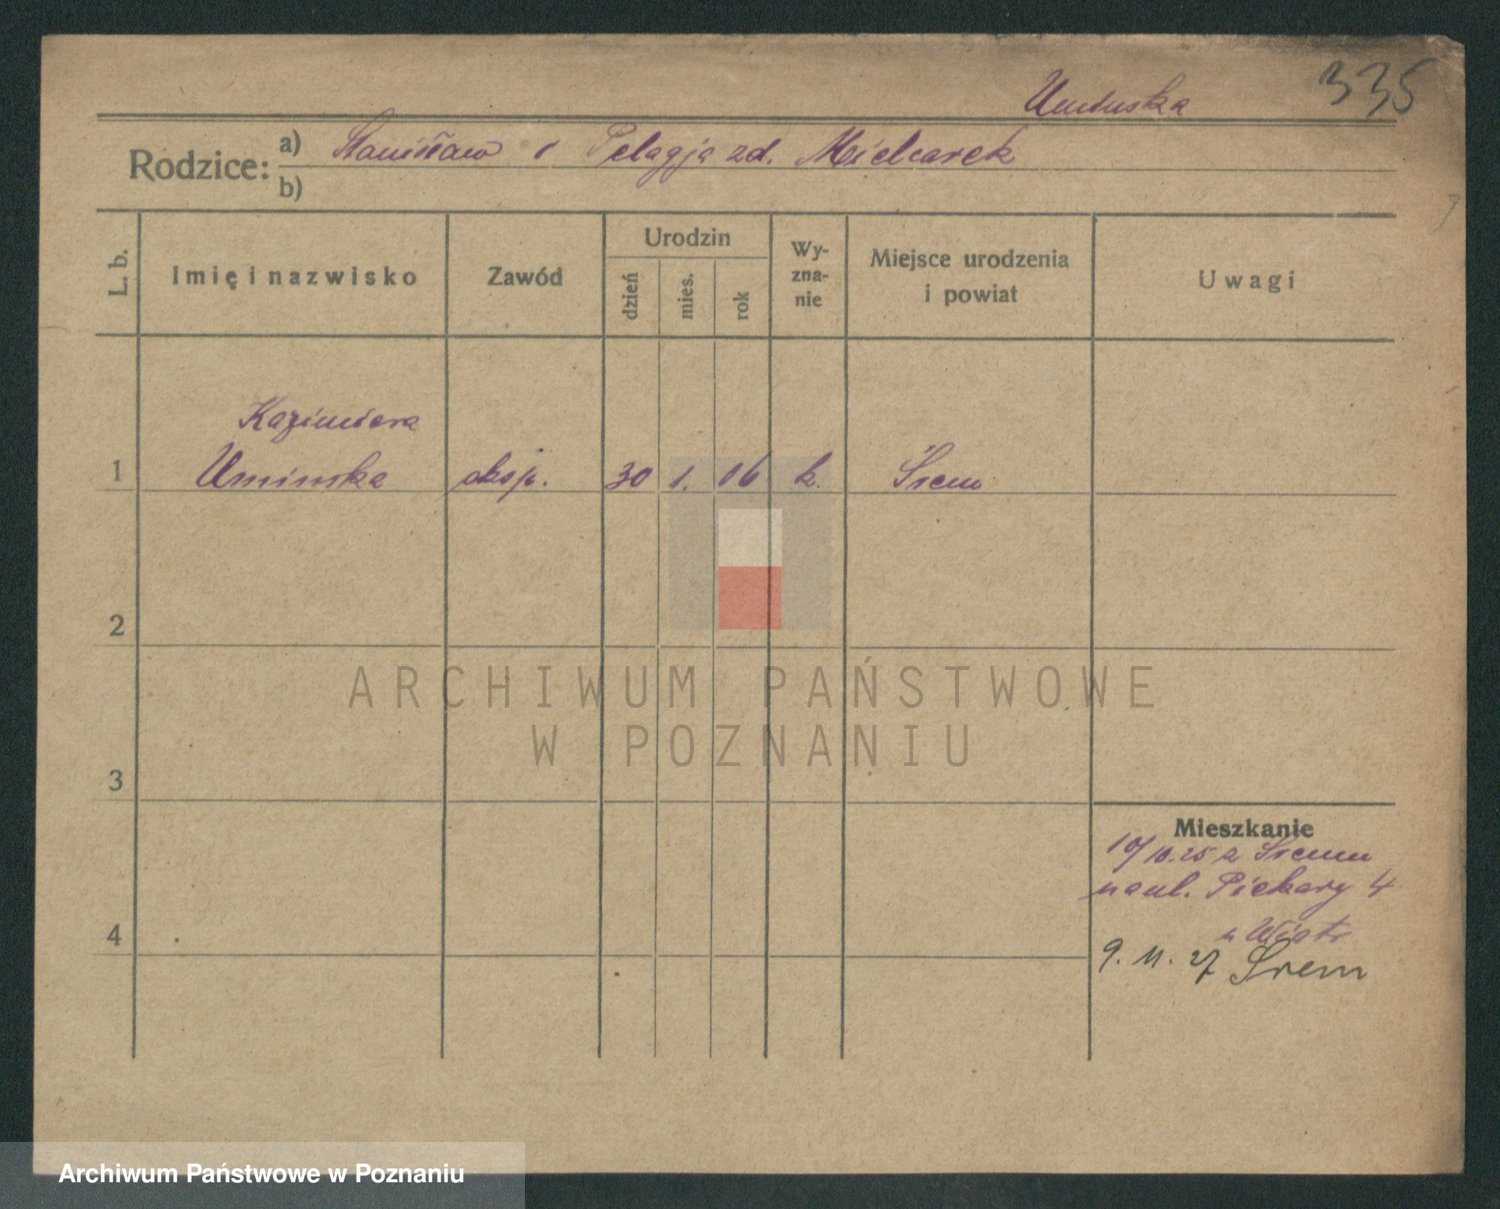 335
Umińska
Rodzice: a) Stanisław i Pelagja zd. Mielcarek
b)
L. b.
Imię i nazwisko
Zawód
Urodzin
dzień
mies.
rok
Wy-
zna-
nie
Miejsce urodzenia
i powiat
Uwagi
Kazimiera
1 Umińska eksp. 30 1. 06 k. Śrem
2
3
4
Mieszkanie
10/10.25 z Śremu
na ul. Piekary 4
u Wiatr
9. 11. 27 Śrem
ARCHIWUM PAŃSTWOWE
W POZNANIU
Archiwum Państwowe w Poznaniu